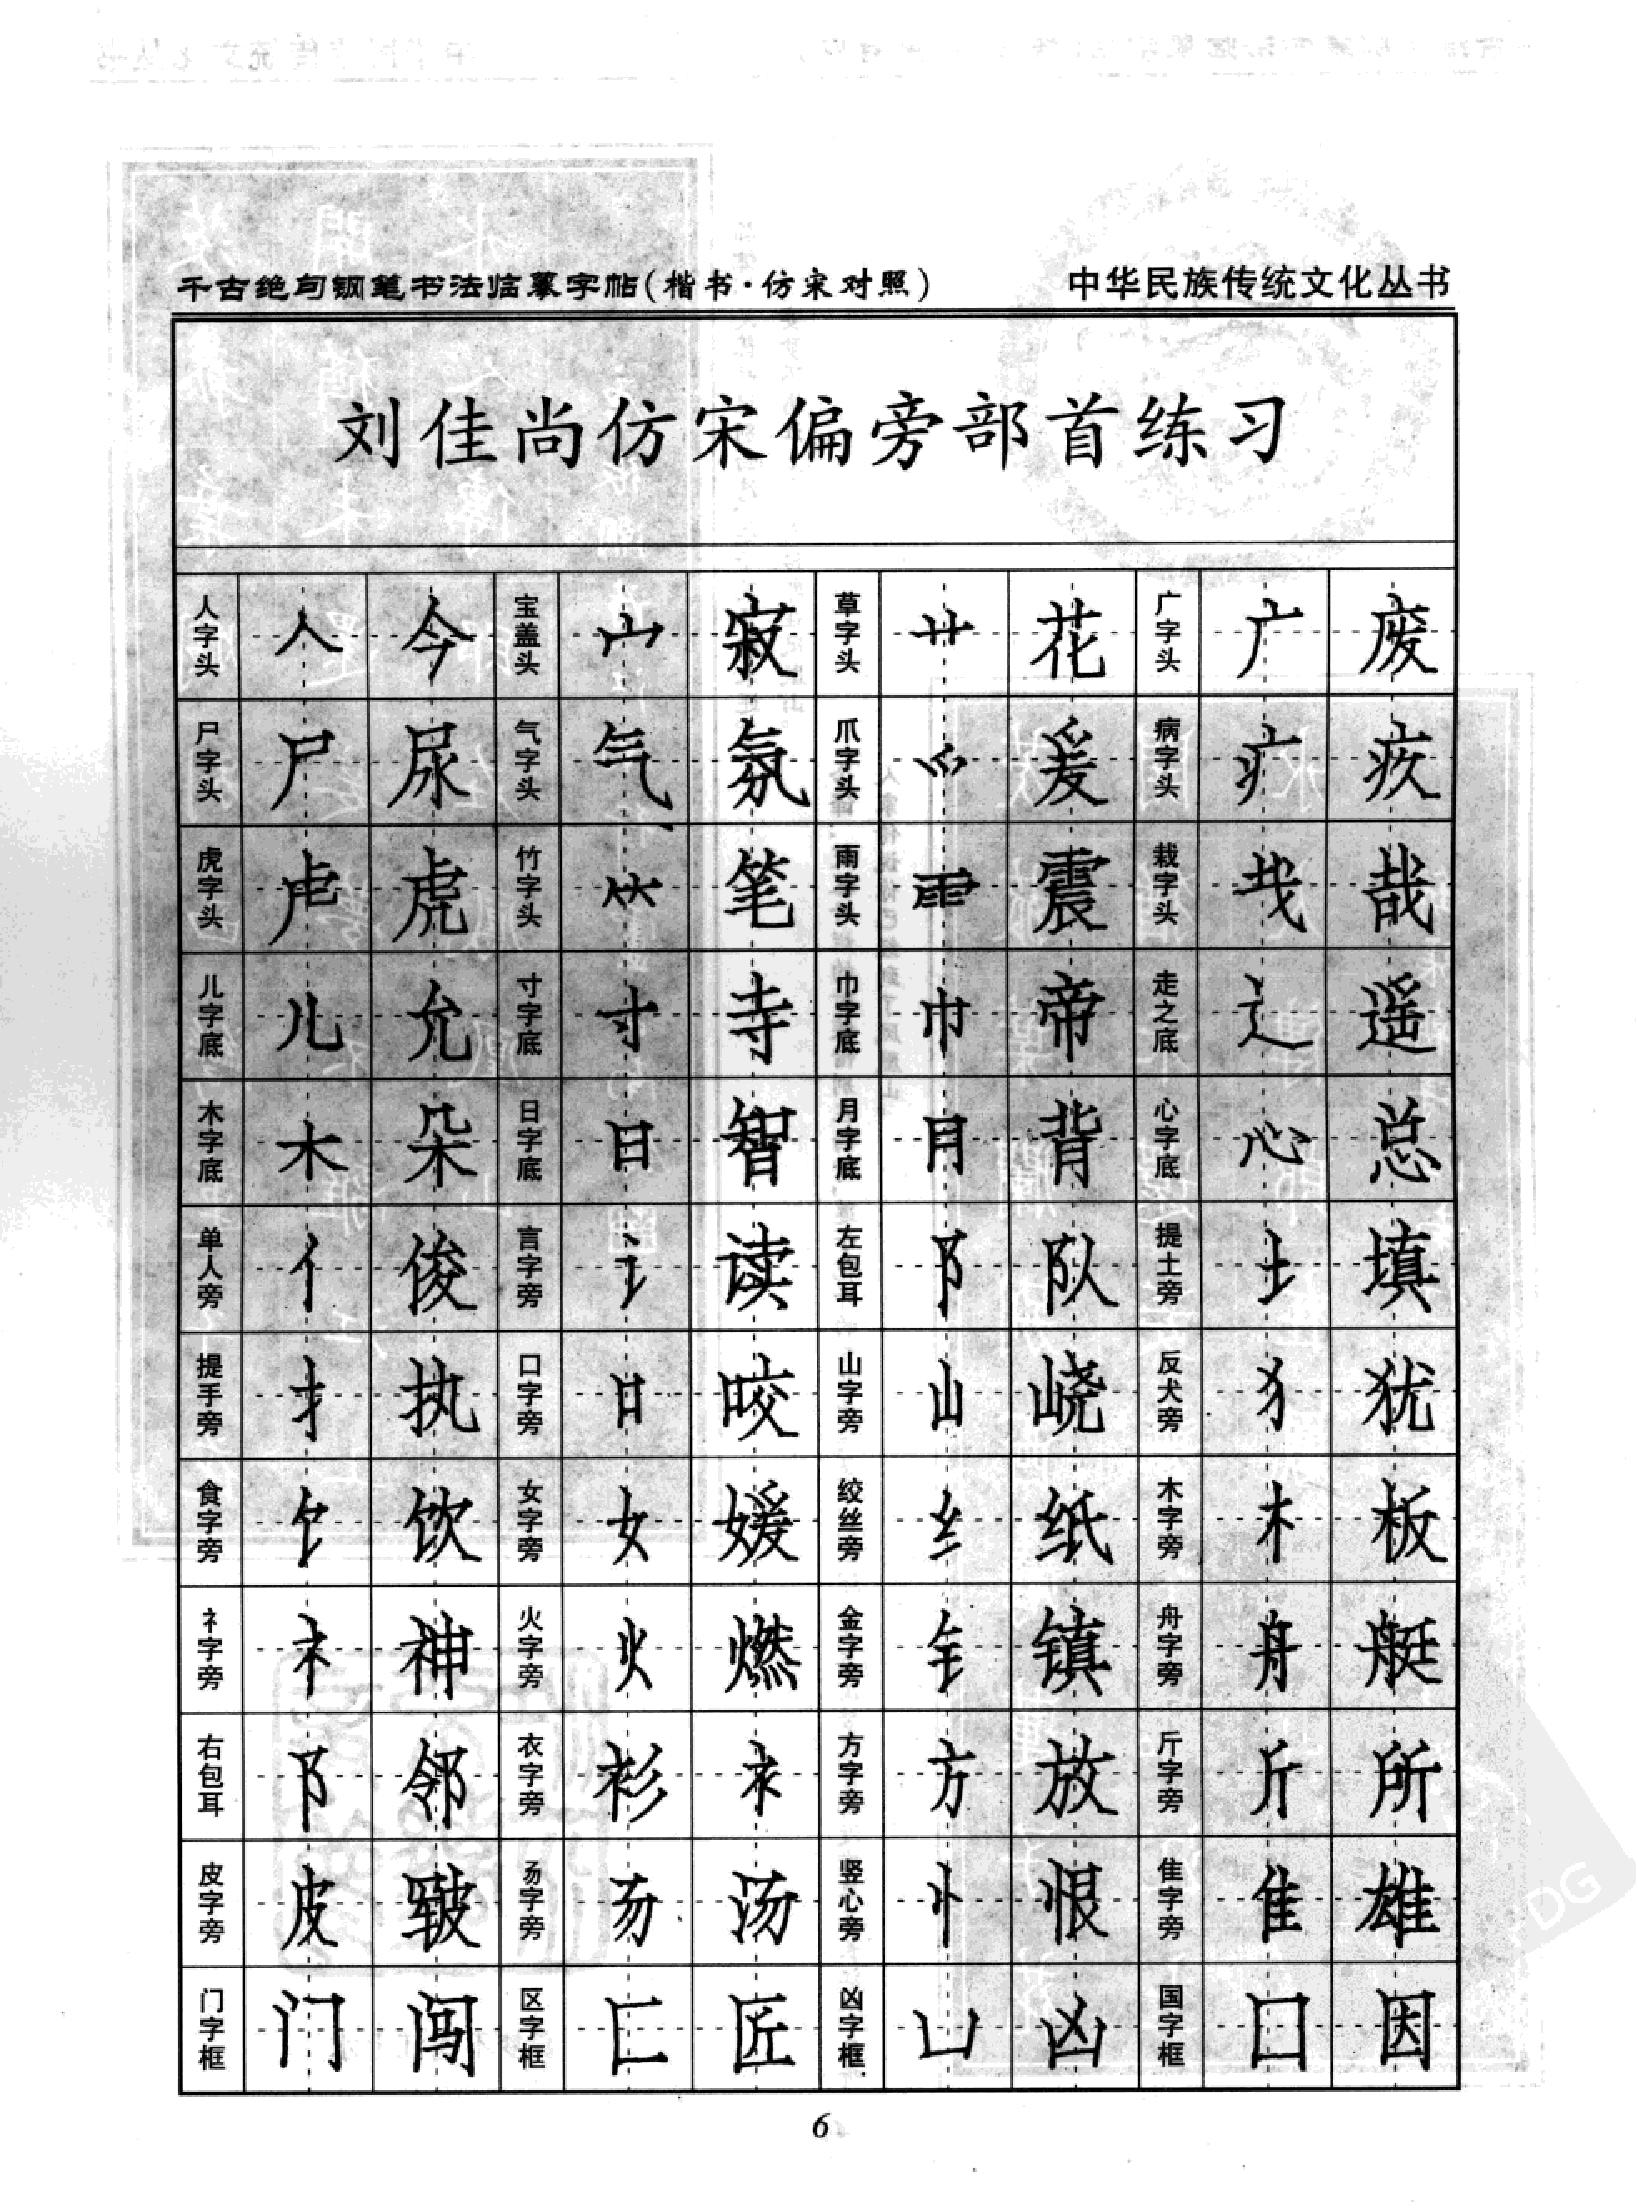 千古绝句钢笔书法临摹字帖(楷书·仿宋对照) 中华民族传统文化丛书
刘佳尚仿宋偏旁部首练习
人字头 人 今 宝盖头 宀 寂 草字头 艹 花 广字头 广 废
尸字头 尸 尿 气字头 气 氛 爪字头 爫 爰 病字头 疒 疾
虎字头 虍 虎 竹字头 ⺮ 笔 雨字头 ⻗ 震 栽字头 𢦏 哉
儿字底 儿 允 寸字底 寸 寺 巾字底 巾 帝 走之底 辶 遥
木字底 木 朵 日字底 日 智 月字底 月 背 心字底 心 总
单人旁 亻 俊 言字旁 讠 读 左包耳 阝 队 提土旁 土 填
提手旁 扌 执 口字旁 口 咬 山字旁 山 峣 反犬旁 犭 犹
食字旁 饣 饮 女字旁 女 媛 绞丝旁 纟 纸 木字旁 木 板
礻字旁 礻 神 火字旁 火 燃 金字旁 钅 镇 舟字旁 舟 艇
右包耳 阝 邻 衣字旁 衫 衤 方字旁 方 放 斤字旁 斤 所
皮字旁 皮 皲 汤字旁 汤 竖心旁 忄 恨 隹字旁 隹 雄
门字框 门 闯 区字框 匚 匠 凶字框 凵 凶 国字框 囗 因
6